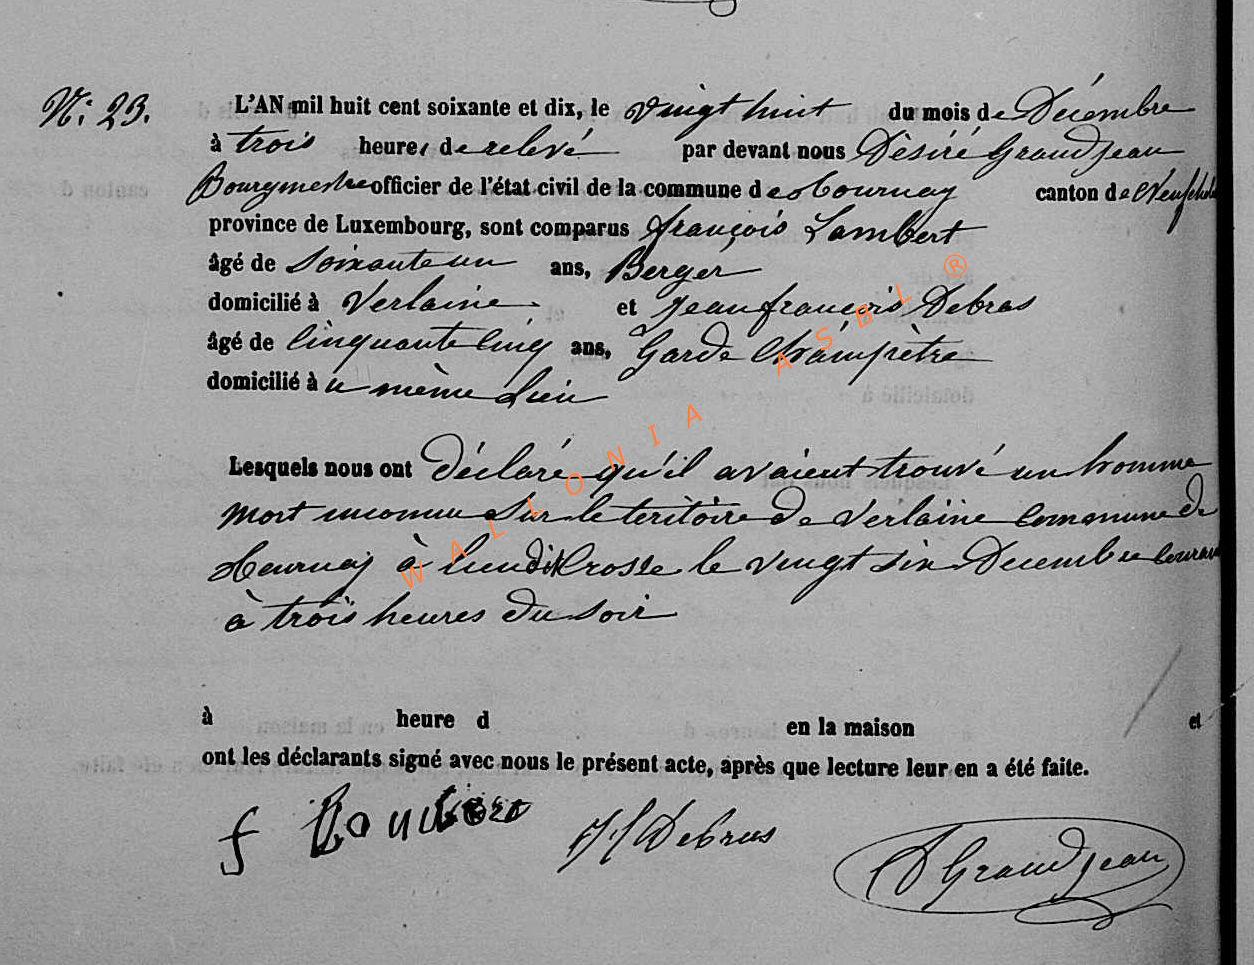 N: 23.
L'AN mil huit cent soixante et dix, le vingt huit du mois de Décembre
à trois heures de relevé par devant nous Désiré Grandjean
Bourgmestre officier de l'état civil de la commune de Tournay canton de Neufchâ
province de Luxembourg, sont comparus françois Lambert
âgé de Soixante un ans, Berger
domicilié à Verlaine et Jean françois Debras
âgé de Cinquante Cinq ans, Garde Champètre
domicilié à u même Lieu
Lesquels nous ont déclaré qu'il avaient trouvé un homme
mort inconnu Sur le teritoire de Verlaine Commune de
Tournay à lieu dit Crosse le vingt six Decembre Courant
à trois heures du Soir
à heure d en la maison et
ont les déclarants signé avec nous le présent acte, après que lecture leur en a été faite.
f Lambert JfDebras D Grandjean
WALLONIA ASBL ®